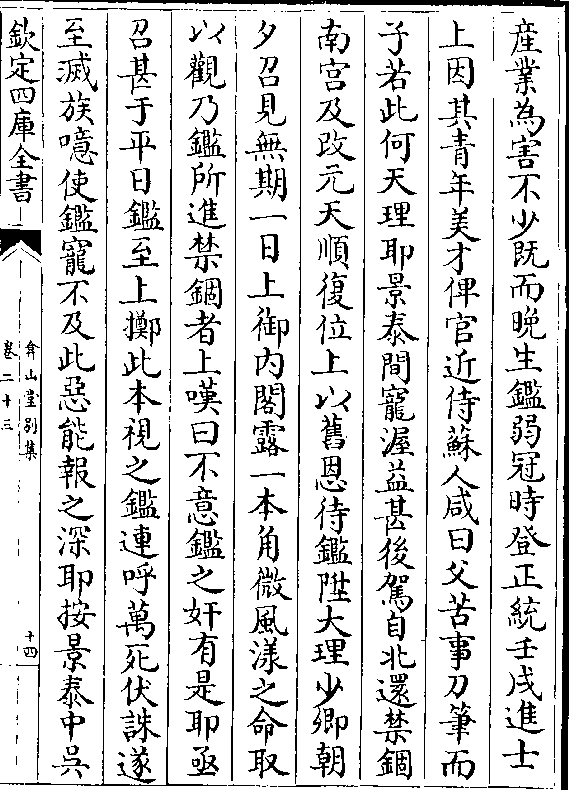 産業為害不少既而晚生鑑弱冠時登正統壬戌進士
上因其青年美才俾官近侍蘇人咸曰父苦事刀筆而
子若此何天理耶景泰間寵渥益甚後駕自北還禁錮
南宫及改元天順復位上以舊恩待鑑陞大理少卿朝
夕召見無期一日上御内閣露一本角微風漾之命取
以觀乃鑑所進禁錮者上嘆曰不意鑑之奸有是耶亟
召甚于平日鑑至上擲此本視之鑑連呼萬死伏誅遂
至滅族噫使鑑寵不及此惡能報之深耶按景泰中吳
欽定四庫全書
弇山堂别集
卷二十三
十四